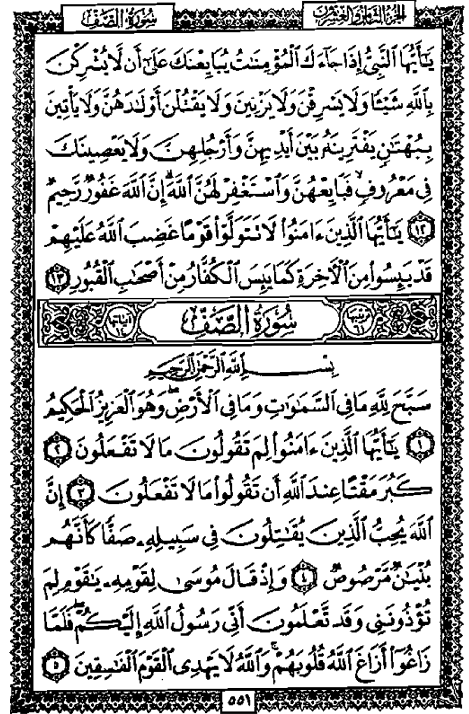 سُورَةُ الصَّفِّ
الجزء الثامن والعشرون
يَٰٓأَيُّهَا ٱلنَّبِيُّ إِذَا جَآءَكَ ٱلْمُؤْمِنَٰتُ يُبَايِعْنَكَ عَلَىٰٓ أَن لَّا يُشْرِكْنَ
بِٱللَّهِ شَيْـًٔا وَلَا يَسْرِقْنَ وَلَا يَزْنِينَ وَلَا يَقْتُلْنَ أَوْلَٰدَهُنَّ وَلَا يَأْتِينَ
بِبُهْتَٰنٍ يَفْتَرِينَهُۥ بَيْنَ أَيْدِيهِنَّ وَأَرْجُلِهِنَّ وَلَا يَعْصِينَكَ
فِى مَعْرُوفٍ فَبَايِعْهُنَّ وَٱسْتَغْفِرْ لَهُنَّ ٱللَّهَ إِنَّ ٱللَّهَ غَفُورٌ رَّحِيمٌ
١٢ يَٰٓأَيُّهَا ٱلَّذِينَ ءَامَنُوا۟ لَا تَتَوَلَّوْا۟ قَوْمًا غَضِبَ ٱللَّهُ عَلَيْهِمْ
قَدْ يَئِسُوا۟ مِنَ ٱلْءَاخِرَةِ كَمَا يَئِسَ ٱلْكُفَّارُ مِنْ أَصْحَٰبِ ٱلْقُبُورِ ١٣
ترتيبها ٦١ سُورَةُ الصَّفِّ آياتها ١٤
بِسْمِ ٱللَّهِ ٱلرَّحْمَٰنِ ٱلرَّحِيمِ
سَبَّحَ لِلَّهِ مَا فِى ٱلسَّمَٰوَٰتِ وَمَا فِى ٱلْأَرْضِ وَهُوَ ٱلْعَزِيزُ ٱلْحَكِيمُ
١ يَٰٓأَيُّهَا ٱلَّذِينَ ءَامَنُوا۟ لِمَ تَقُولُونَ مَا لَا تَفْعَلُونَ ٢
كَبُرَ مَقْتًا عِندَ ٱللَّهِ أَن تَقُولُوا۟ مَا لَا تَفْعَلُونَ ٣ إِنَّ
ٱللَّهَ يُحِبُّ ٱلَّذِينَ يُقَٰتِلُونَ فِى سَبِيلِهِۦ صَفًّا كَأَنَّهُم
بُنْيَٰنٌ مَّرْصُوصٌ ٤ وَإِذْ قَالَ مُوسَىٰ لِقَوْمِهِۦ يَٰقَوْمِ لِمَ
تُؤْذُونَنِى وَقَد تَّعْلَمُونَ أَنِّى رَسُولُ ٱللَّهِ إِلَيْكُمْ فَلَمَّا
زَاغُوٓا۟ أَزَاغَ ٱللَّهُ قُلُوبَهُمْ وَٱللَّهُ لَا يَهْدِى ٱلْقَوْمَ ٱلْفَٰسِقِينَ ٥
٥٥١